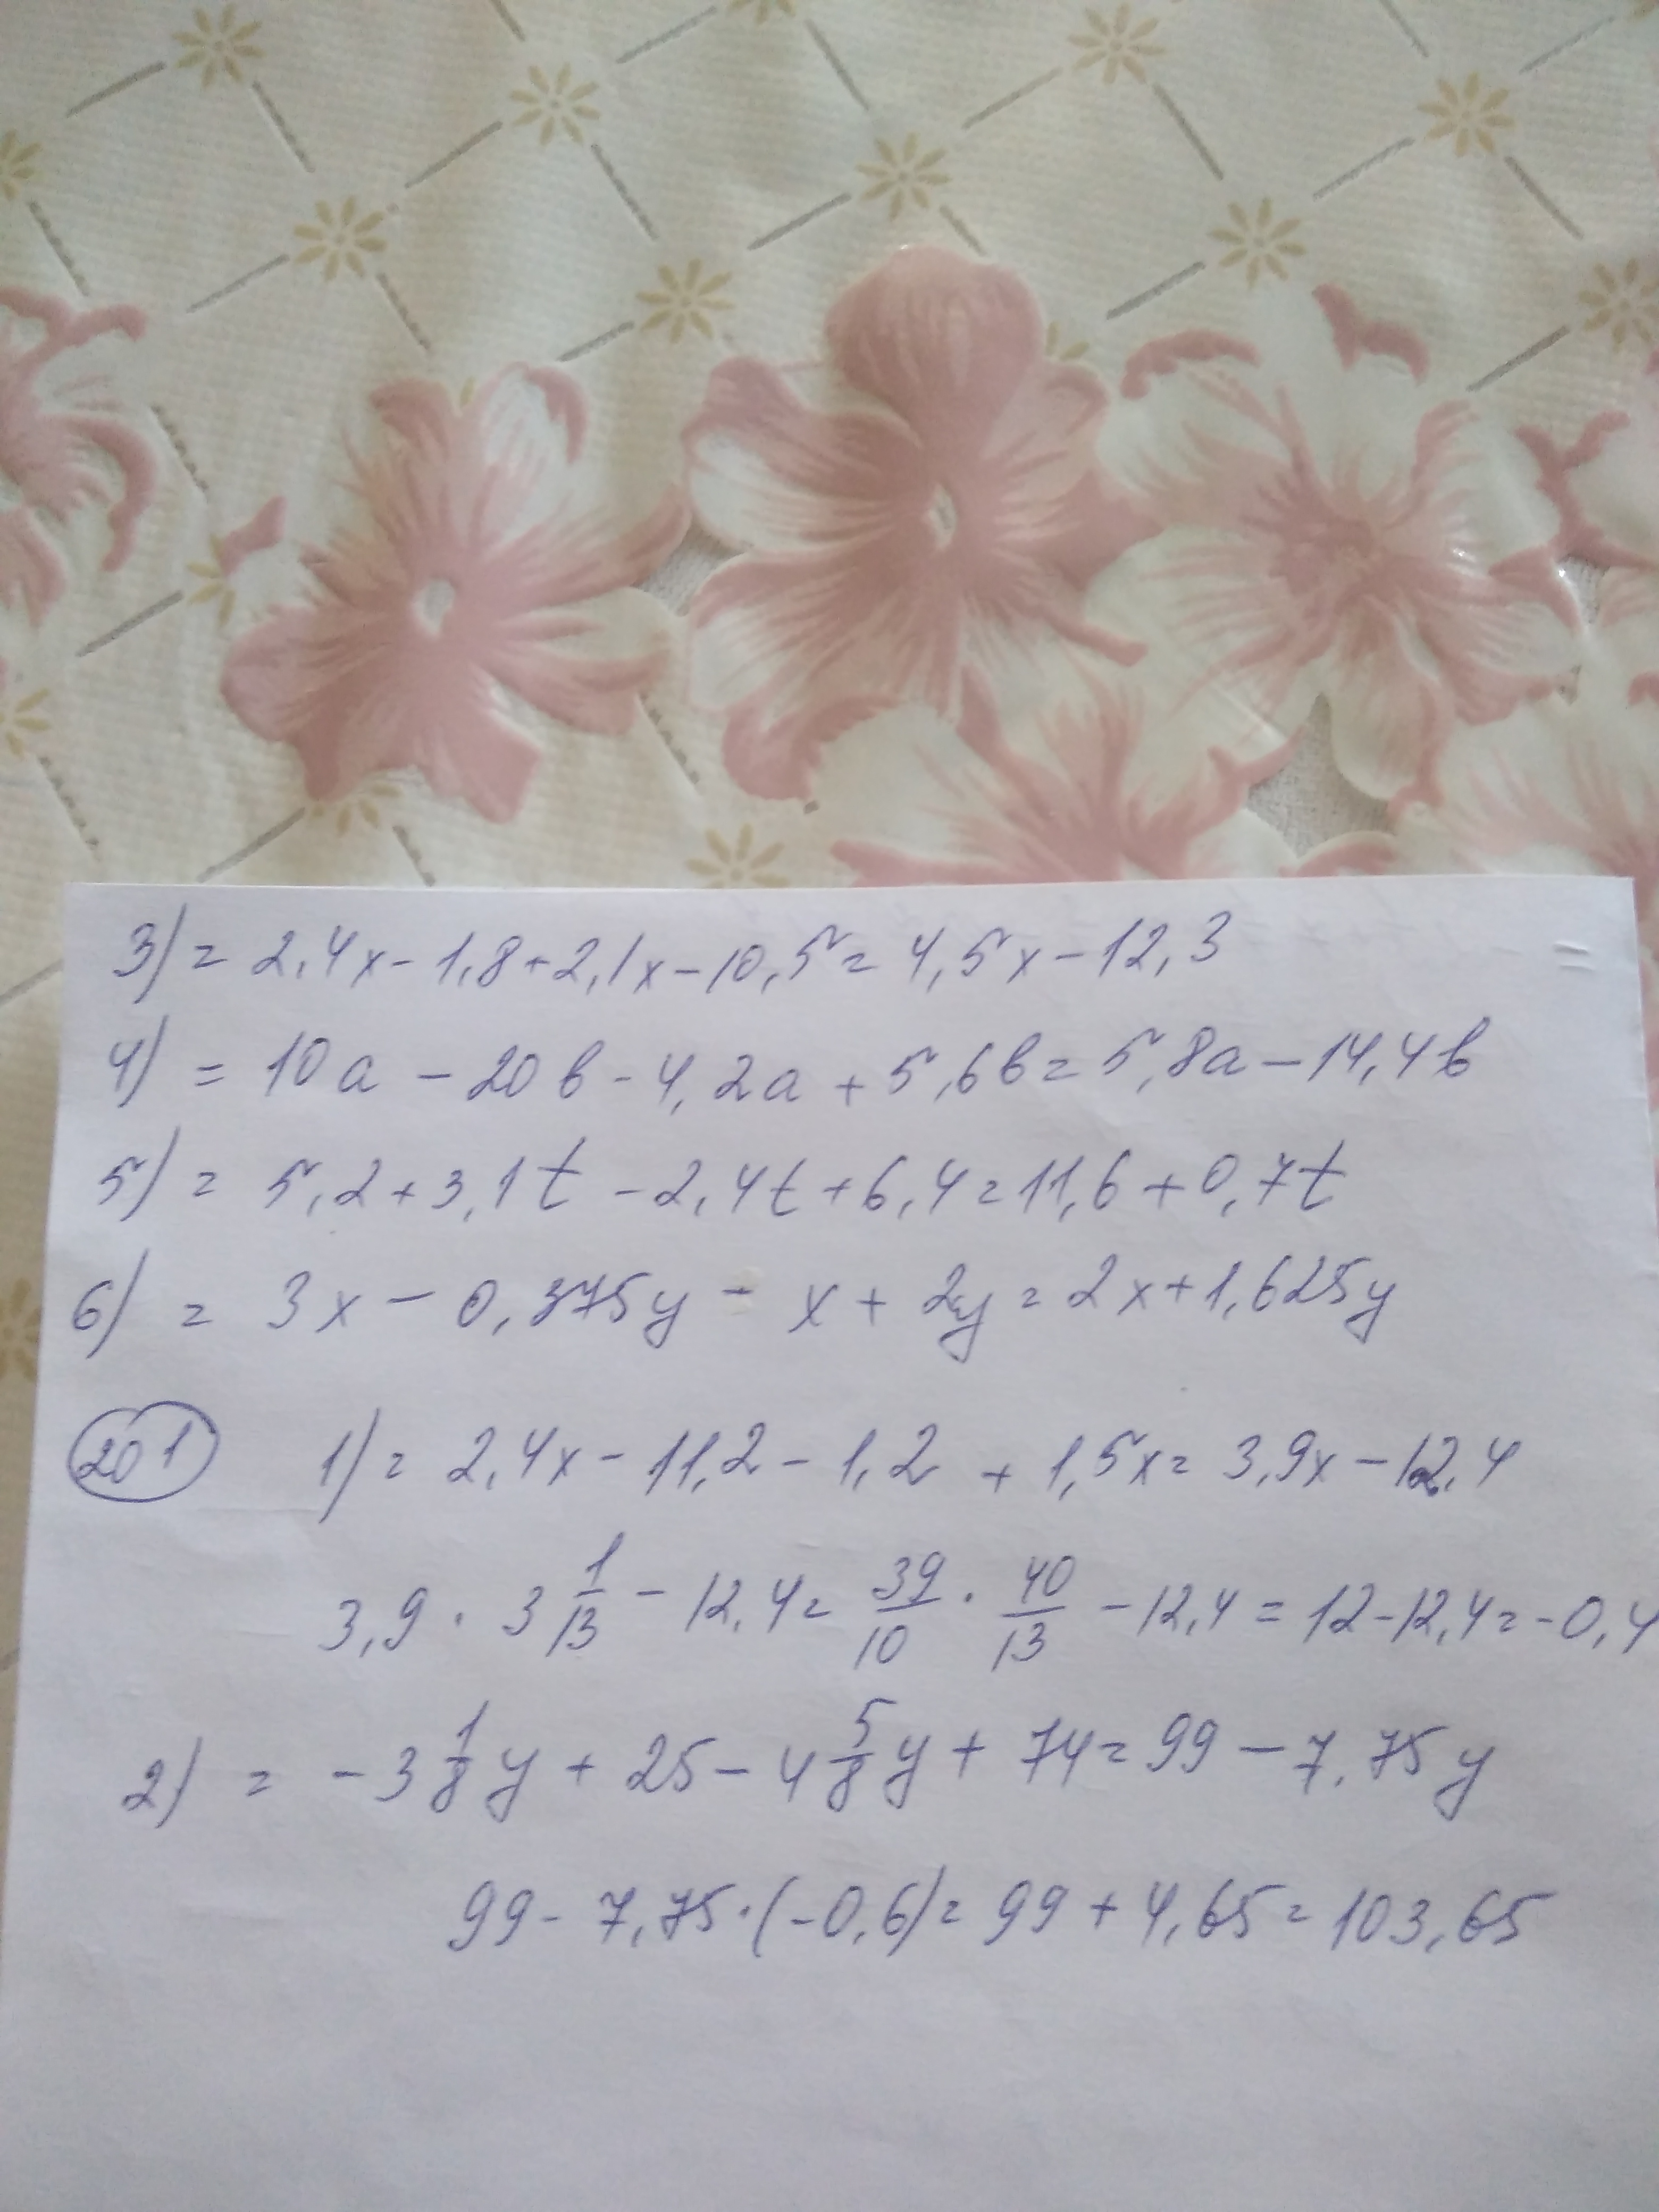 3) = 2,4x - 1,8 + 2,1x - 10,5 = 4,5x - 12,3
4) = 10a - 20b - 4,2a + 5,6b = 5,8a - 14,4b
5) = 5,2 + 3,1t - 2,4t + 6,4 = 11,6 + 0,7t
6) = 3x - 0,375y - x + 2y = 2x + 1,625y
201 1) = 2,4x - 11,2 - 1,2 + 1,5x = 3,9x - 12,4
3,9 · 3 1/13 - 12,4 = 39/10 · 40/13 - 12,4 = 12 - 12,4 = -0,4
2) = -3 1/8 y + 25 - 4 5/8 y + 74 = 99 - 7,75y
99 - 7,75 · (-0,6) = 99 + 4,65 = 103,65